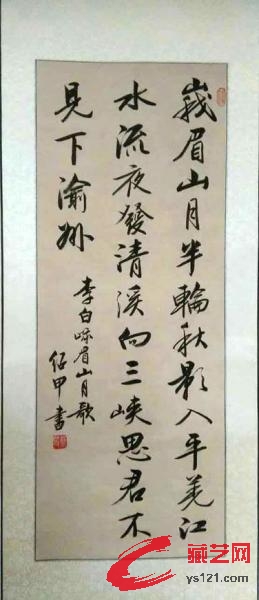 峨眉山月半輪秋影入平羌江
水流夜發清溪向三峡思君不
見下渝州
李白峨眉山月歌
紹甲書
藏艺网
ys121.com